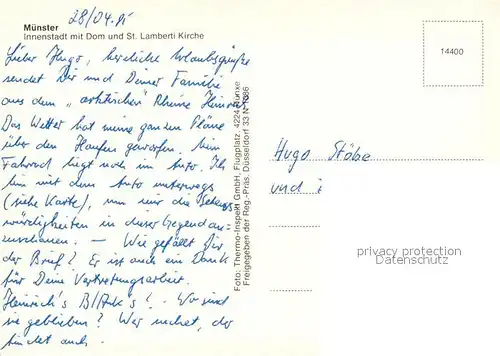 28/04.
Münster
Innenstadt mit Dom und St. Lamberti Kirche
Lieber Hugo, herzliche Urlaubsgrüße
sendet Dir und Deiner Familie
aus dem „arktischen" Rheine Heinrich
Das Wetter hat meine ganzen Pläne
über den Haufen geworfen. Mein
Fahrrad liegt noch im Auto. Ich
bin mit dem Auto unterwegs
(siehe Karte), um mir die Sehens-
würdigkeiten in dieser Gegend an-
zuschauen. — Wie gefällt Dir
der Brief? Er ist auch ein Dank
für Deine Vertretungsarbeit.
Heinrich's
Wo sind
sie geblieben? Wer suchet, der
findet auch.
Foto: Thermo-Inspekt GmbH, Flugplatz, 4224 Hünxe
Freigegeben der Reg.-Präs. Düsseldorf 33 N 1986
14400
Hugo Stöbe
und
privacy protection
www.delcampe.net